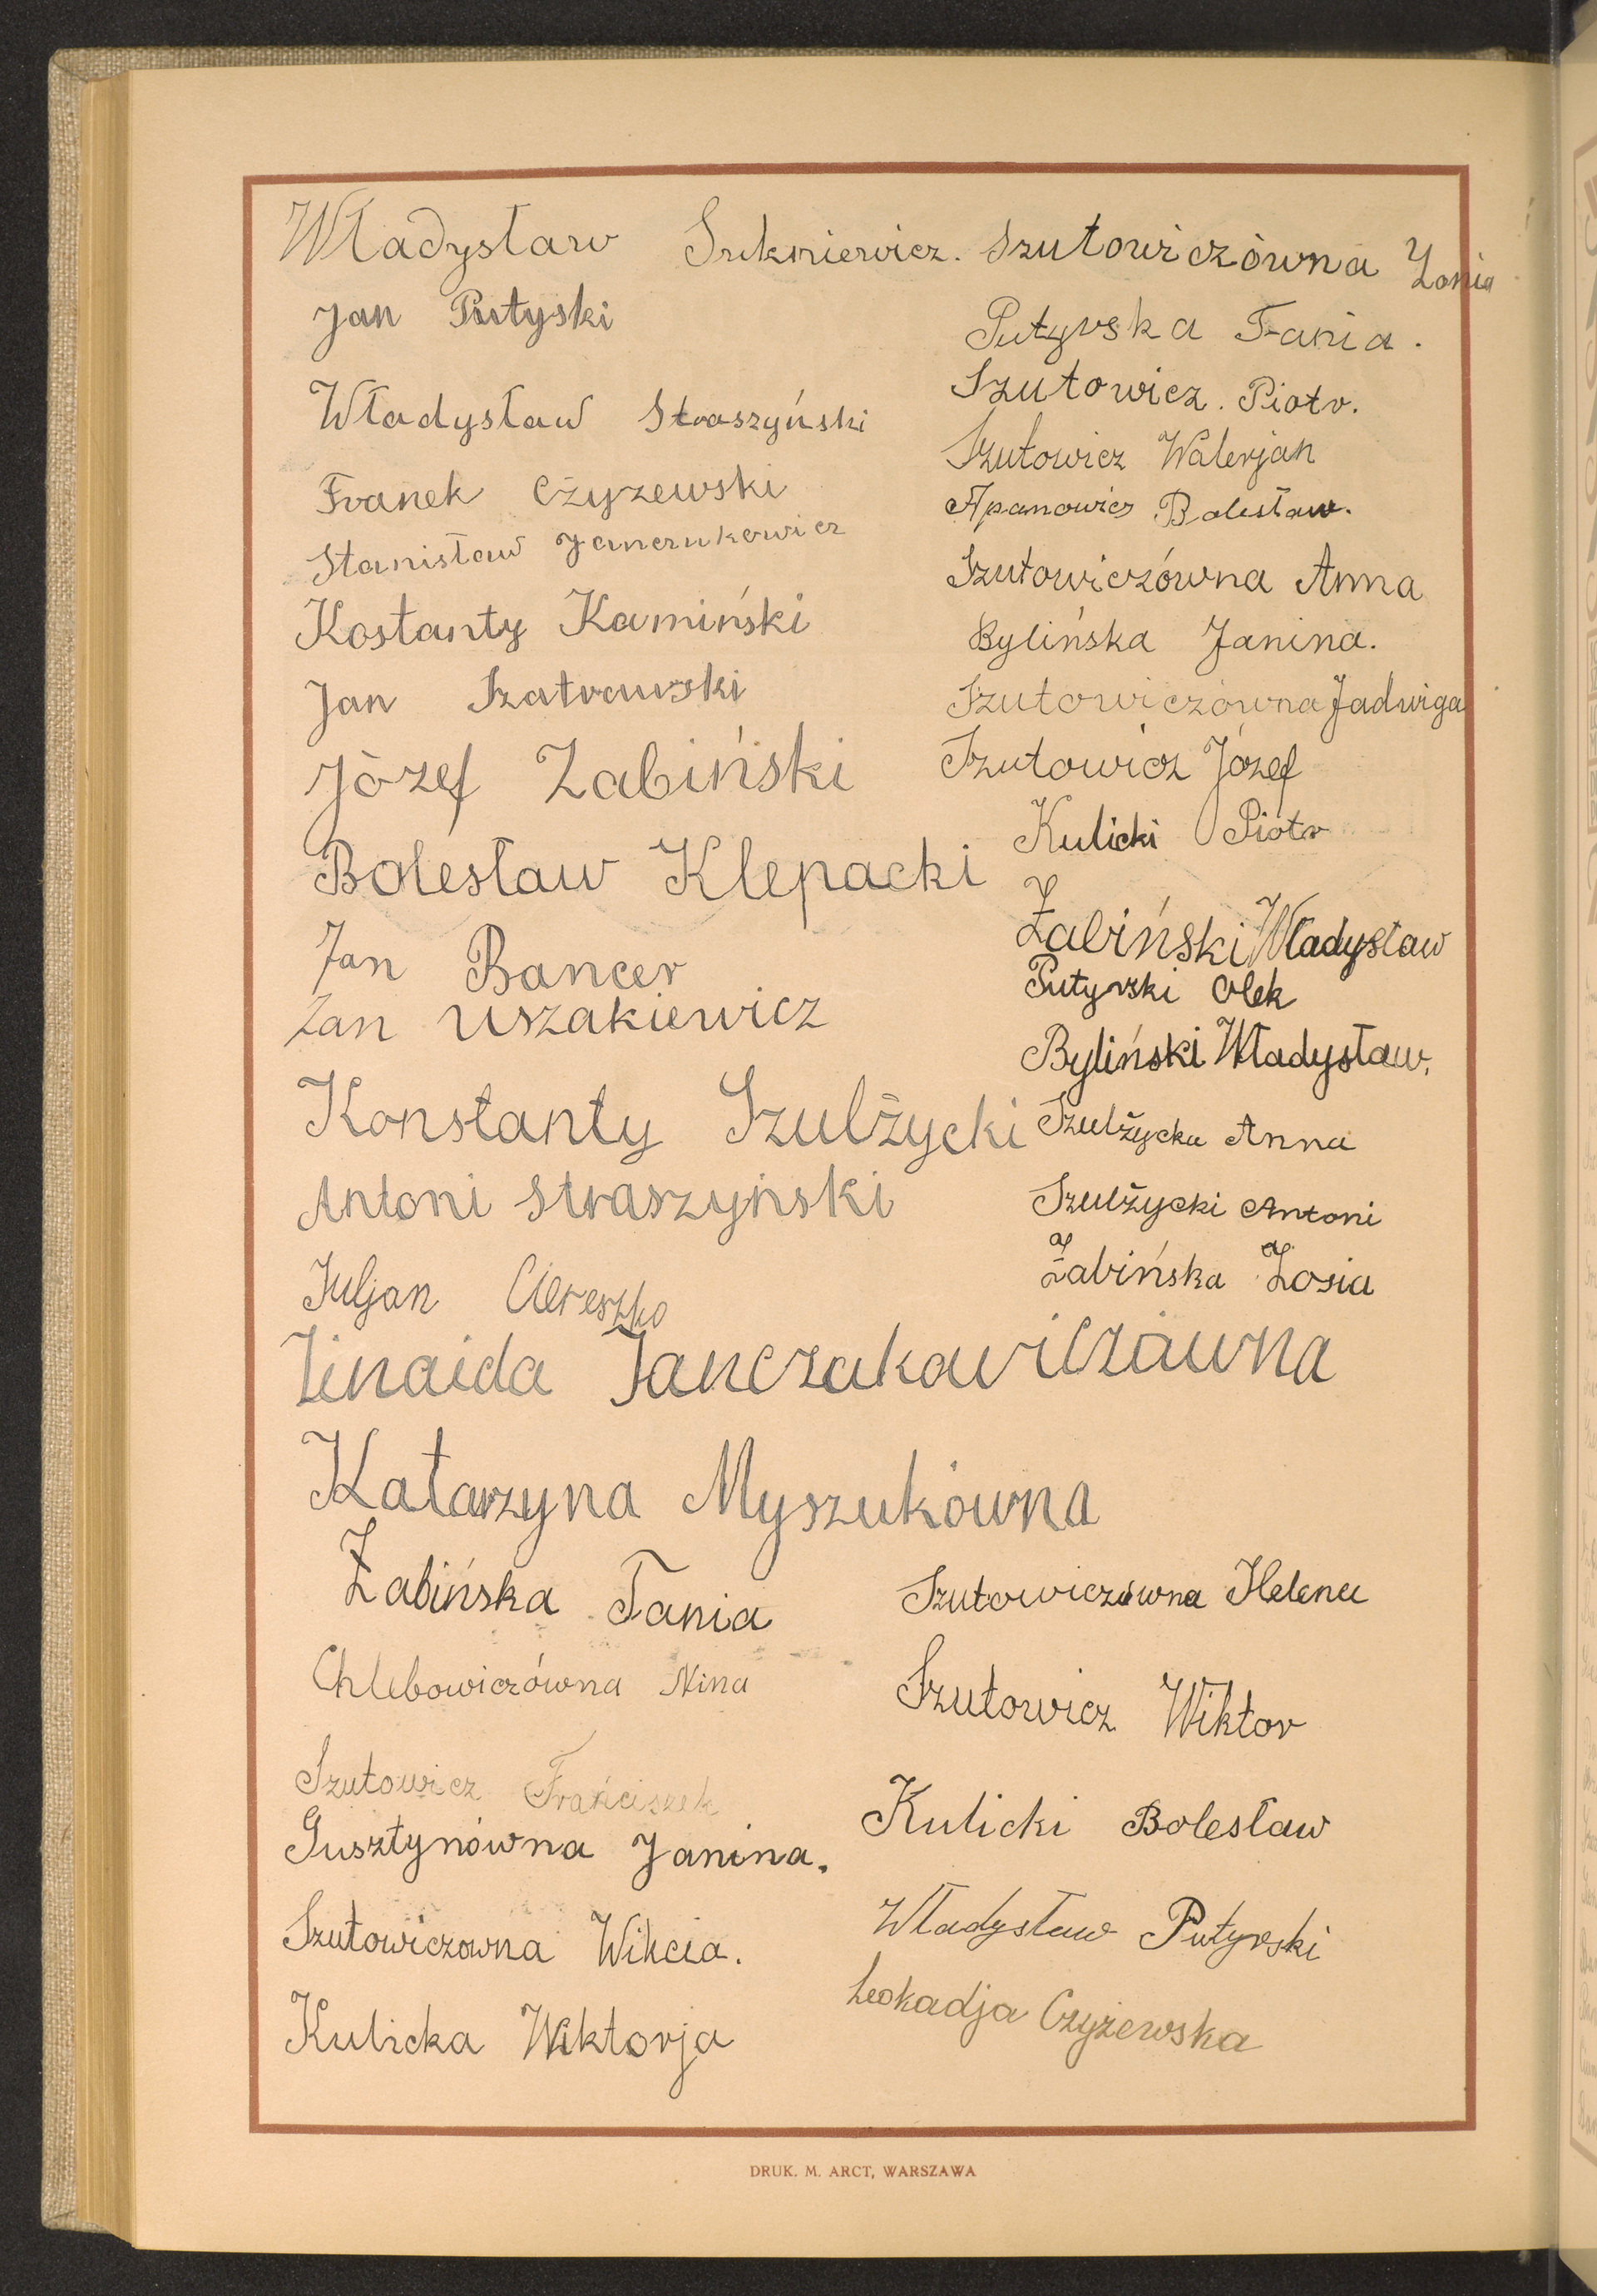 Władysław Sukniewicz.
Jan Putyski
Władysław Straszyński
Franek Czyzewski
Stanisław Janczukowicz
Kostanty Kamiński
Jan Szatrawski
Józef Zabiński
Bolesław Klepacki
Jan Bancer
Zan Uszakiewicz
Konstanty Szulżycki
Antoni Straszyński
Juljan Ciereszko
Zinaida Janczukawiczówna
Katarzyna Myszukówna
Żabińska Fania
Chlebowiczówna Nina
Szutowicz Franciszek
Gusztynówna Janina.
Szutowiczowna Wikcia.
Kulicka Wiktorja
Szutowiczówna Zonia
Putyrska Fania.
Szutowicz. Piotr.
Szutowicz Walerjan
Apanowicz Bolesław.
Szutowiczówna Anna
Bylińska Janina.
Szutowiczówna Jadwiga
Szutowicz Józef
Kulicki Piotr
Żabiński Władysław
Putyrski Olek
Byliński Władysław.
Szulżycka Anna
Szulżycki Antoni
Żabińska Zosia
Szutowiczówna Helena
Szutowicz Wiktor
Kulicki Bolesław
Władysław Putyrski
Leokadja Czyżewska
DRUK. M. ARCT, WARSZAWA